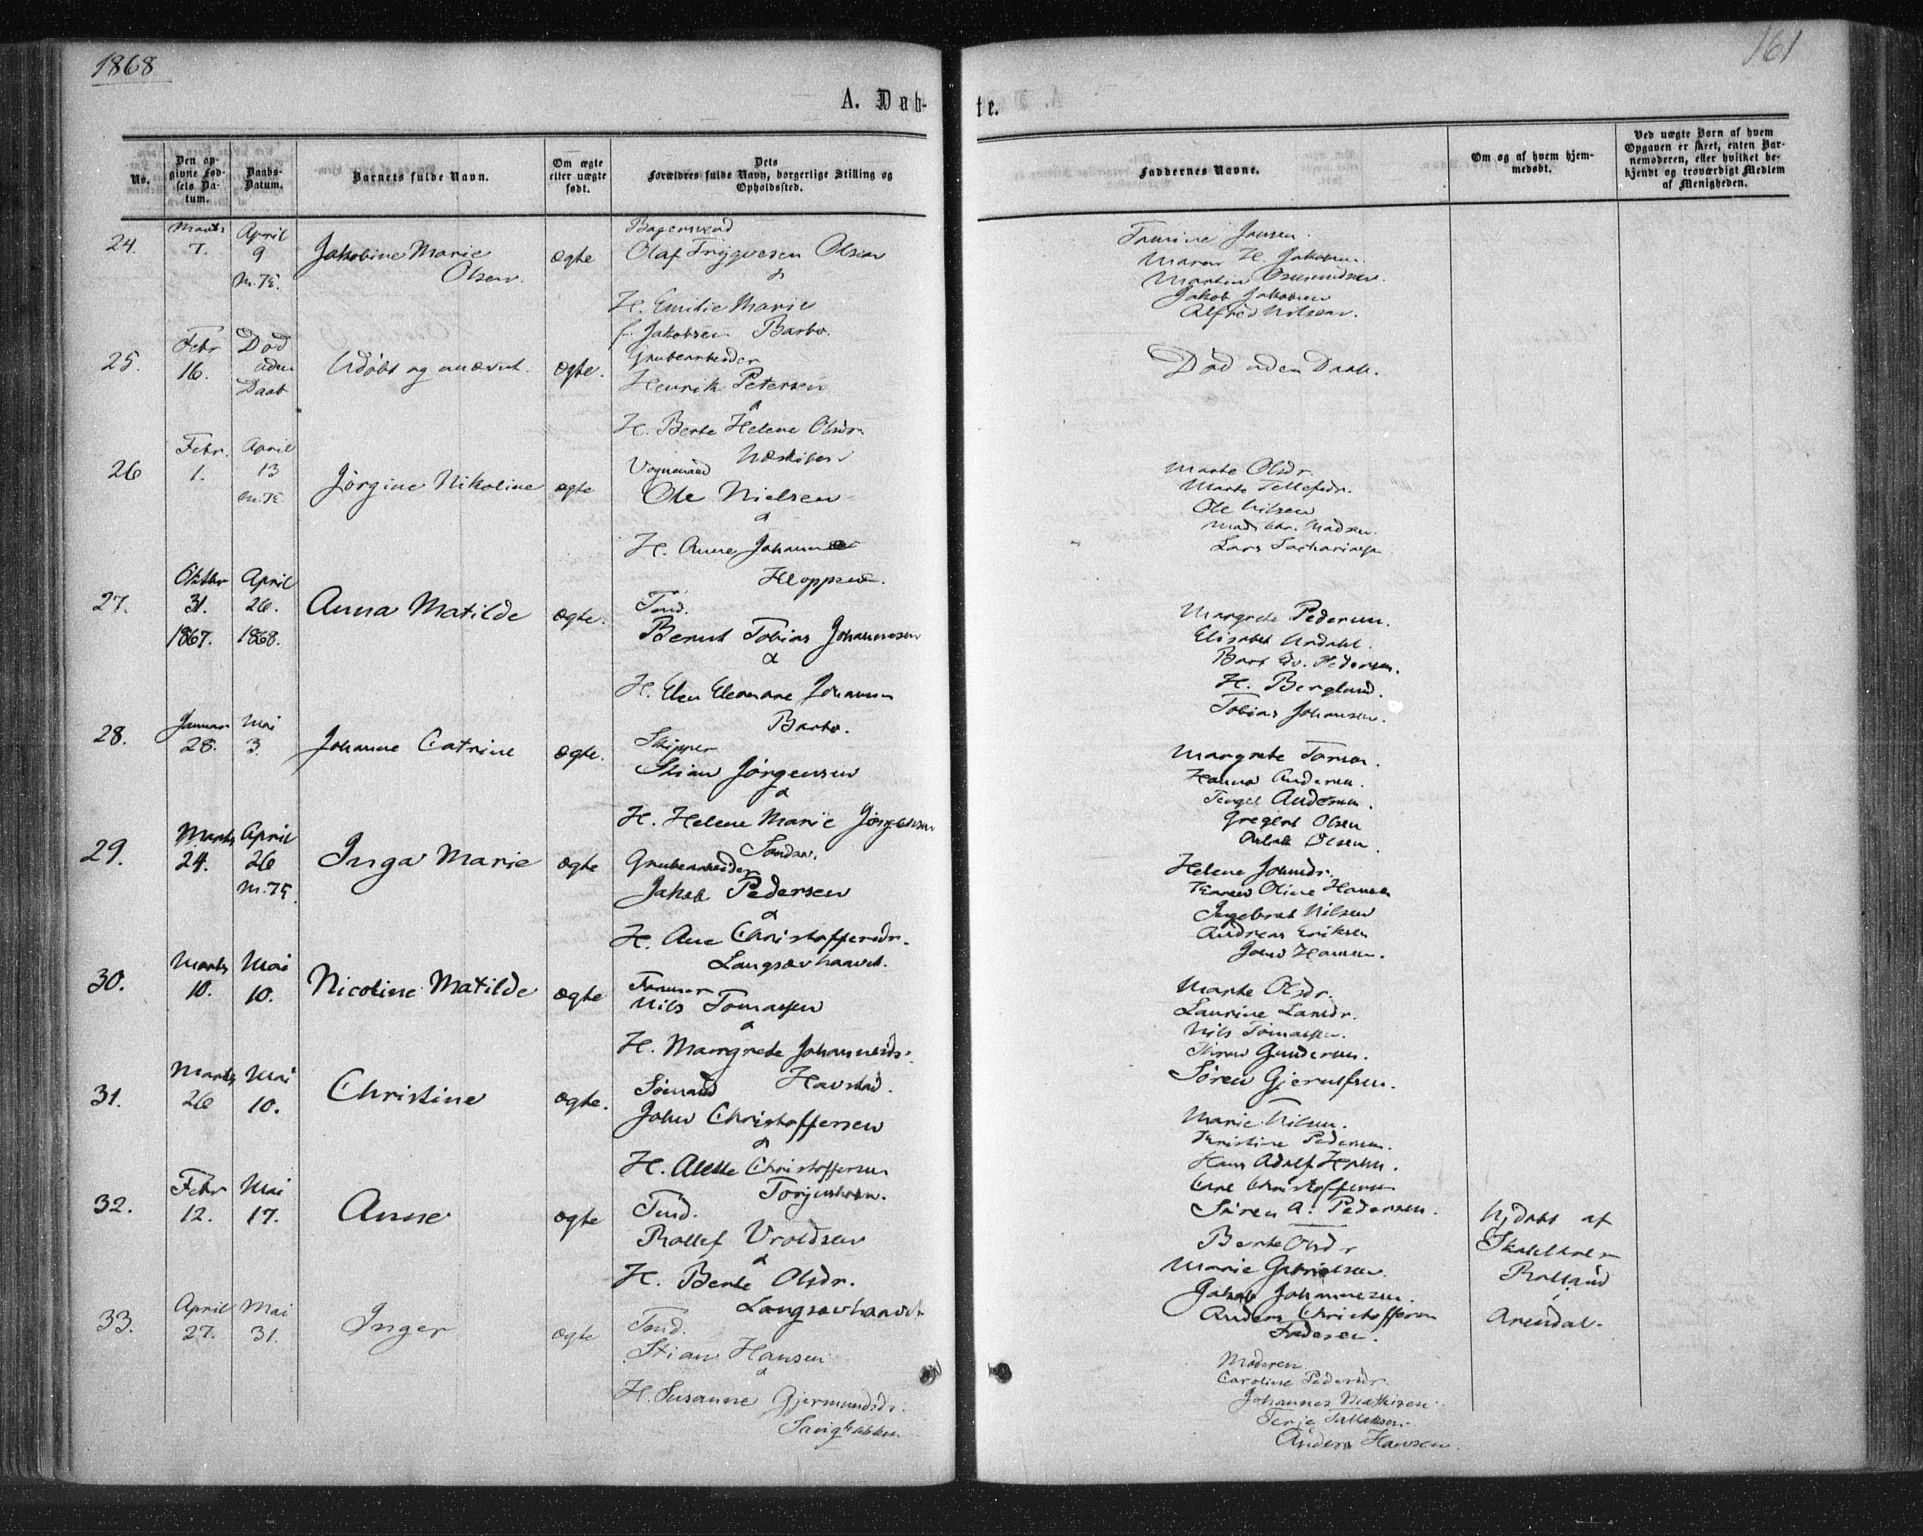 1868
161
A. Døb-
te.
No.
Den opgivne Fødsels Datum.
Daabs-Datum.
Barnets fulde Navn.
Om ægte eller uægte født.
Dets Forældres fulde Navn, borgerlige Stilling og Opholdssted.
Faddernes Navne.
Om og af hvem hjemmedøbt.
Ved uægte Børn af hvem Opgaven er skeet, enten Barnemoderen, eller hvilket bekjendt og troværdigt Medlem af Menigheden.
24.
Marts 7.
April 9
Jakobine Marie Olsen.
ægte
Bagersvend
Olaf Trygvesen Olsen
&
H. Emilie Marie
f. Jakobsen Barbo.
Tomine Jansen.
Maren H. Jakobsen.
Martin Osmundsen.
Jakob Jakobsen
Alfred Nilsen.
25.
Febr 16.
Død uden Daab
Udøbt og unævnt.
ægte.
Grubearbeider
Henrik Petersen
&
H. Berte Helene Olsdr.
Død uden Daab.
26
Febr. 1.
April 13
Jørgine Nikoline
ægte
Vognmand
Ole Nielsen
&
H. Anne Johanne
Kloppene.
Marte Olsdr.
Marte Tellefsdr.
Ole Nilsen
Mads Chr. Madsen.
Lars Sachariasen
27.
Oktbr 31. 1867.
April 26. 1868.
Anna Matilde
ægte.
Tømd.
Bernt Tobias Johannesen
&
H. Elen Eleonore Johansen
Barbo.
Margrete Pedersen.
Elisabet
H. Berglund.
Tobias Johansen.
28.
Januar 28.
Mai 3.
Johanne Catrine
ægte.
Skipper
Stian Jørgensen
&
H. Helene Marie Jørgensen
Margrete
Hanna Andersen.
Andersen.
Gregert Olsen
Olsen.
29.
Marts 24.
April 26
Inga Marie
ægte
Grubearbeider
Jakob Pedersen
&
H. Ane Christoffersdr.
Langsævhaavet.
Helene
Karen Oline Hansen
Ingebret Nilsen
Andreas Eriksen
John Hansen.
30.
Marts 10.
Mai 10.
Nicoline Matilde
ægte
Tømmer
Nils Tomassen
&
H. Margrete Johannesdr.
Havstad.
Marte Olsdr.
Laurine Larsdr.
Nils Tomassen
Gundersen.
Søren Gjerulfsen.
31.
Marts 26
Mai 10.
Christine
ægte.
Sømand
John Christoffersen
&
H. Alette Christoffersen
Marie Nilsen.
Kristine Pedersen.
Hans Adolf
Carl Christoffersen
Søren A. Pedersen.
32.
Febr 12.
Mai 17.
Anne
ægte
Tmd.
Rollef Vroldsen
&
H. Berte Olsdr.
Langsævhaavet
Berte Olsdr
Marie Gabrielsen.
Jakob Johannesen.
Anders Christoffersen
Faderen.
Hjdøbt af
Skoleholder
Rolland
Arendal.
33.
April 27.
Mai 31.
Inger
ægte
Tmd.
Stian Hansen
&
H. Susanne Gjermundsdr.
Moderen.
Caroline Pedersdr.
Johannes Mathisen
Terje
Anders Hansen.